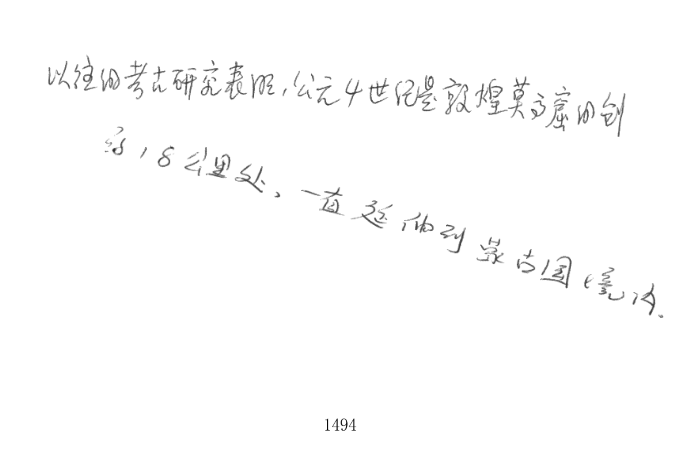 以往的考古研究表明,公元4世纪是敦煌莫高窟的创
约18公里处,一直延伸到蒙古国境内.
1494